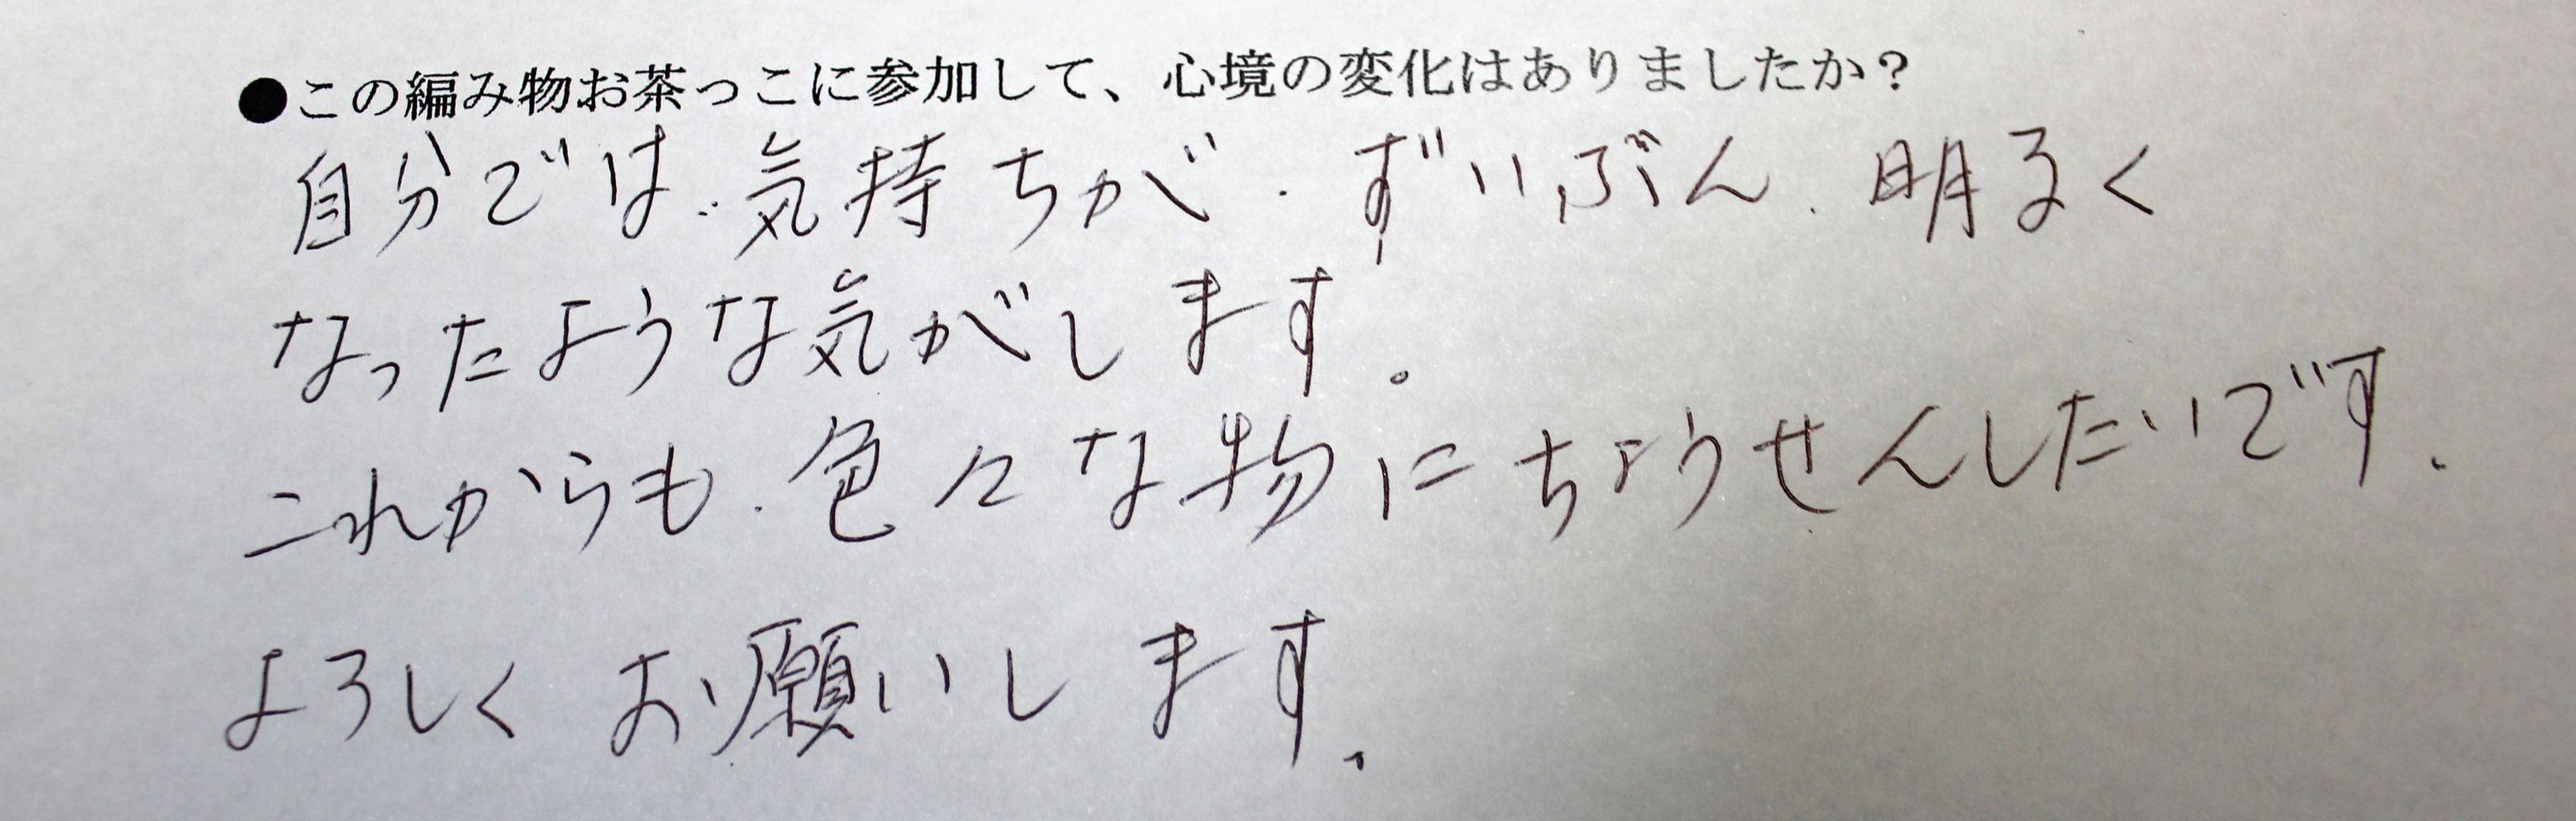 ●この編み物お茶っこに参加して、心境の変化はありましたか？
自分では、気持ちが、ずいぶん、明るく
なったような気がします。
これからも、色々な物にちょうせんしたいです。
よろしくお願いします。